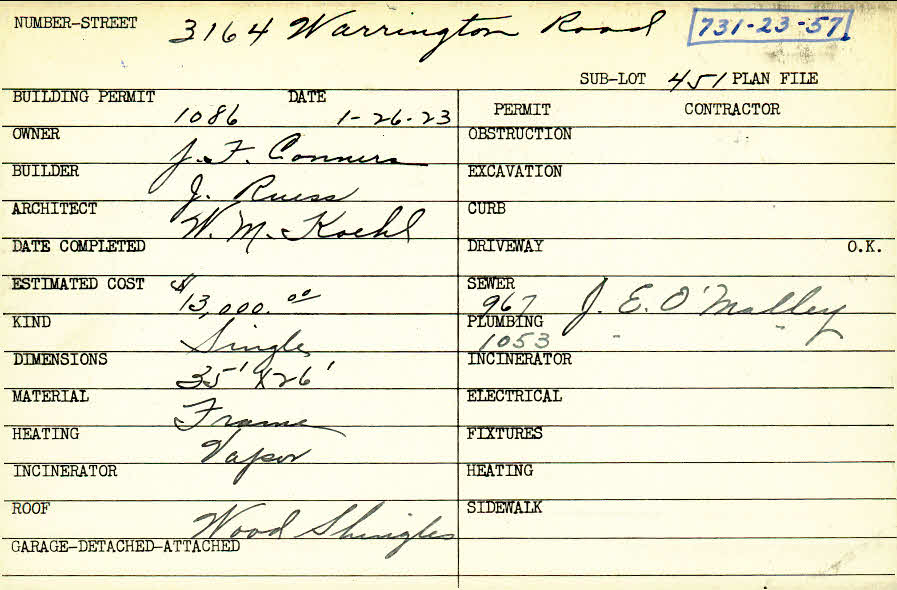 NUMBER-STREET 3164 Warrington Road 731-23-57
SUB-LOT 451 PLAN FILE
BUILDING PERMIT 1086 DATE 1-26-23 PERMIT CONTRACTOR
OWNER J. F. Conners OBSTRUCTION
BUILDER J. Ruess EXCAVATION
ARCHITECT W. M. Koehl CURB
DATE COMPLETED DRIVEWAY O.K.
ESTIMATED COST $13,000.00 SEWER 967 J. E. O'Malley
KIND Single PLUMBING 1053 " "
DIMENSIONS 35' X 26' INCINERATOR
MATERIAL Frame ELECTRICAL
HEATING Vapor FIXTURES
INCINERATOR HEATING
ROOF Wood Shingles SIDEWALK
GARAGE-DETACHED-ATTACHED